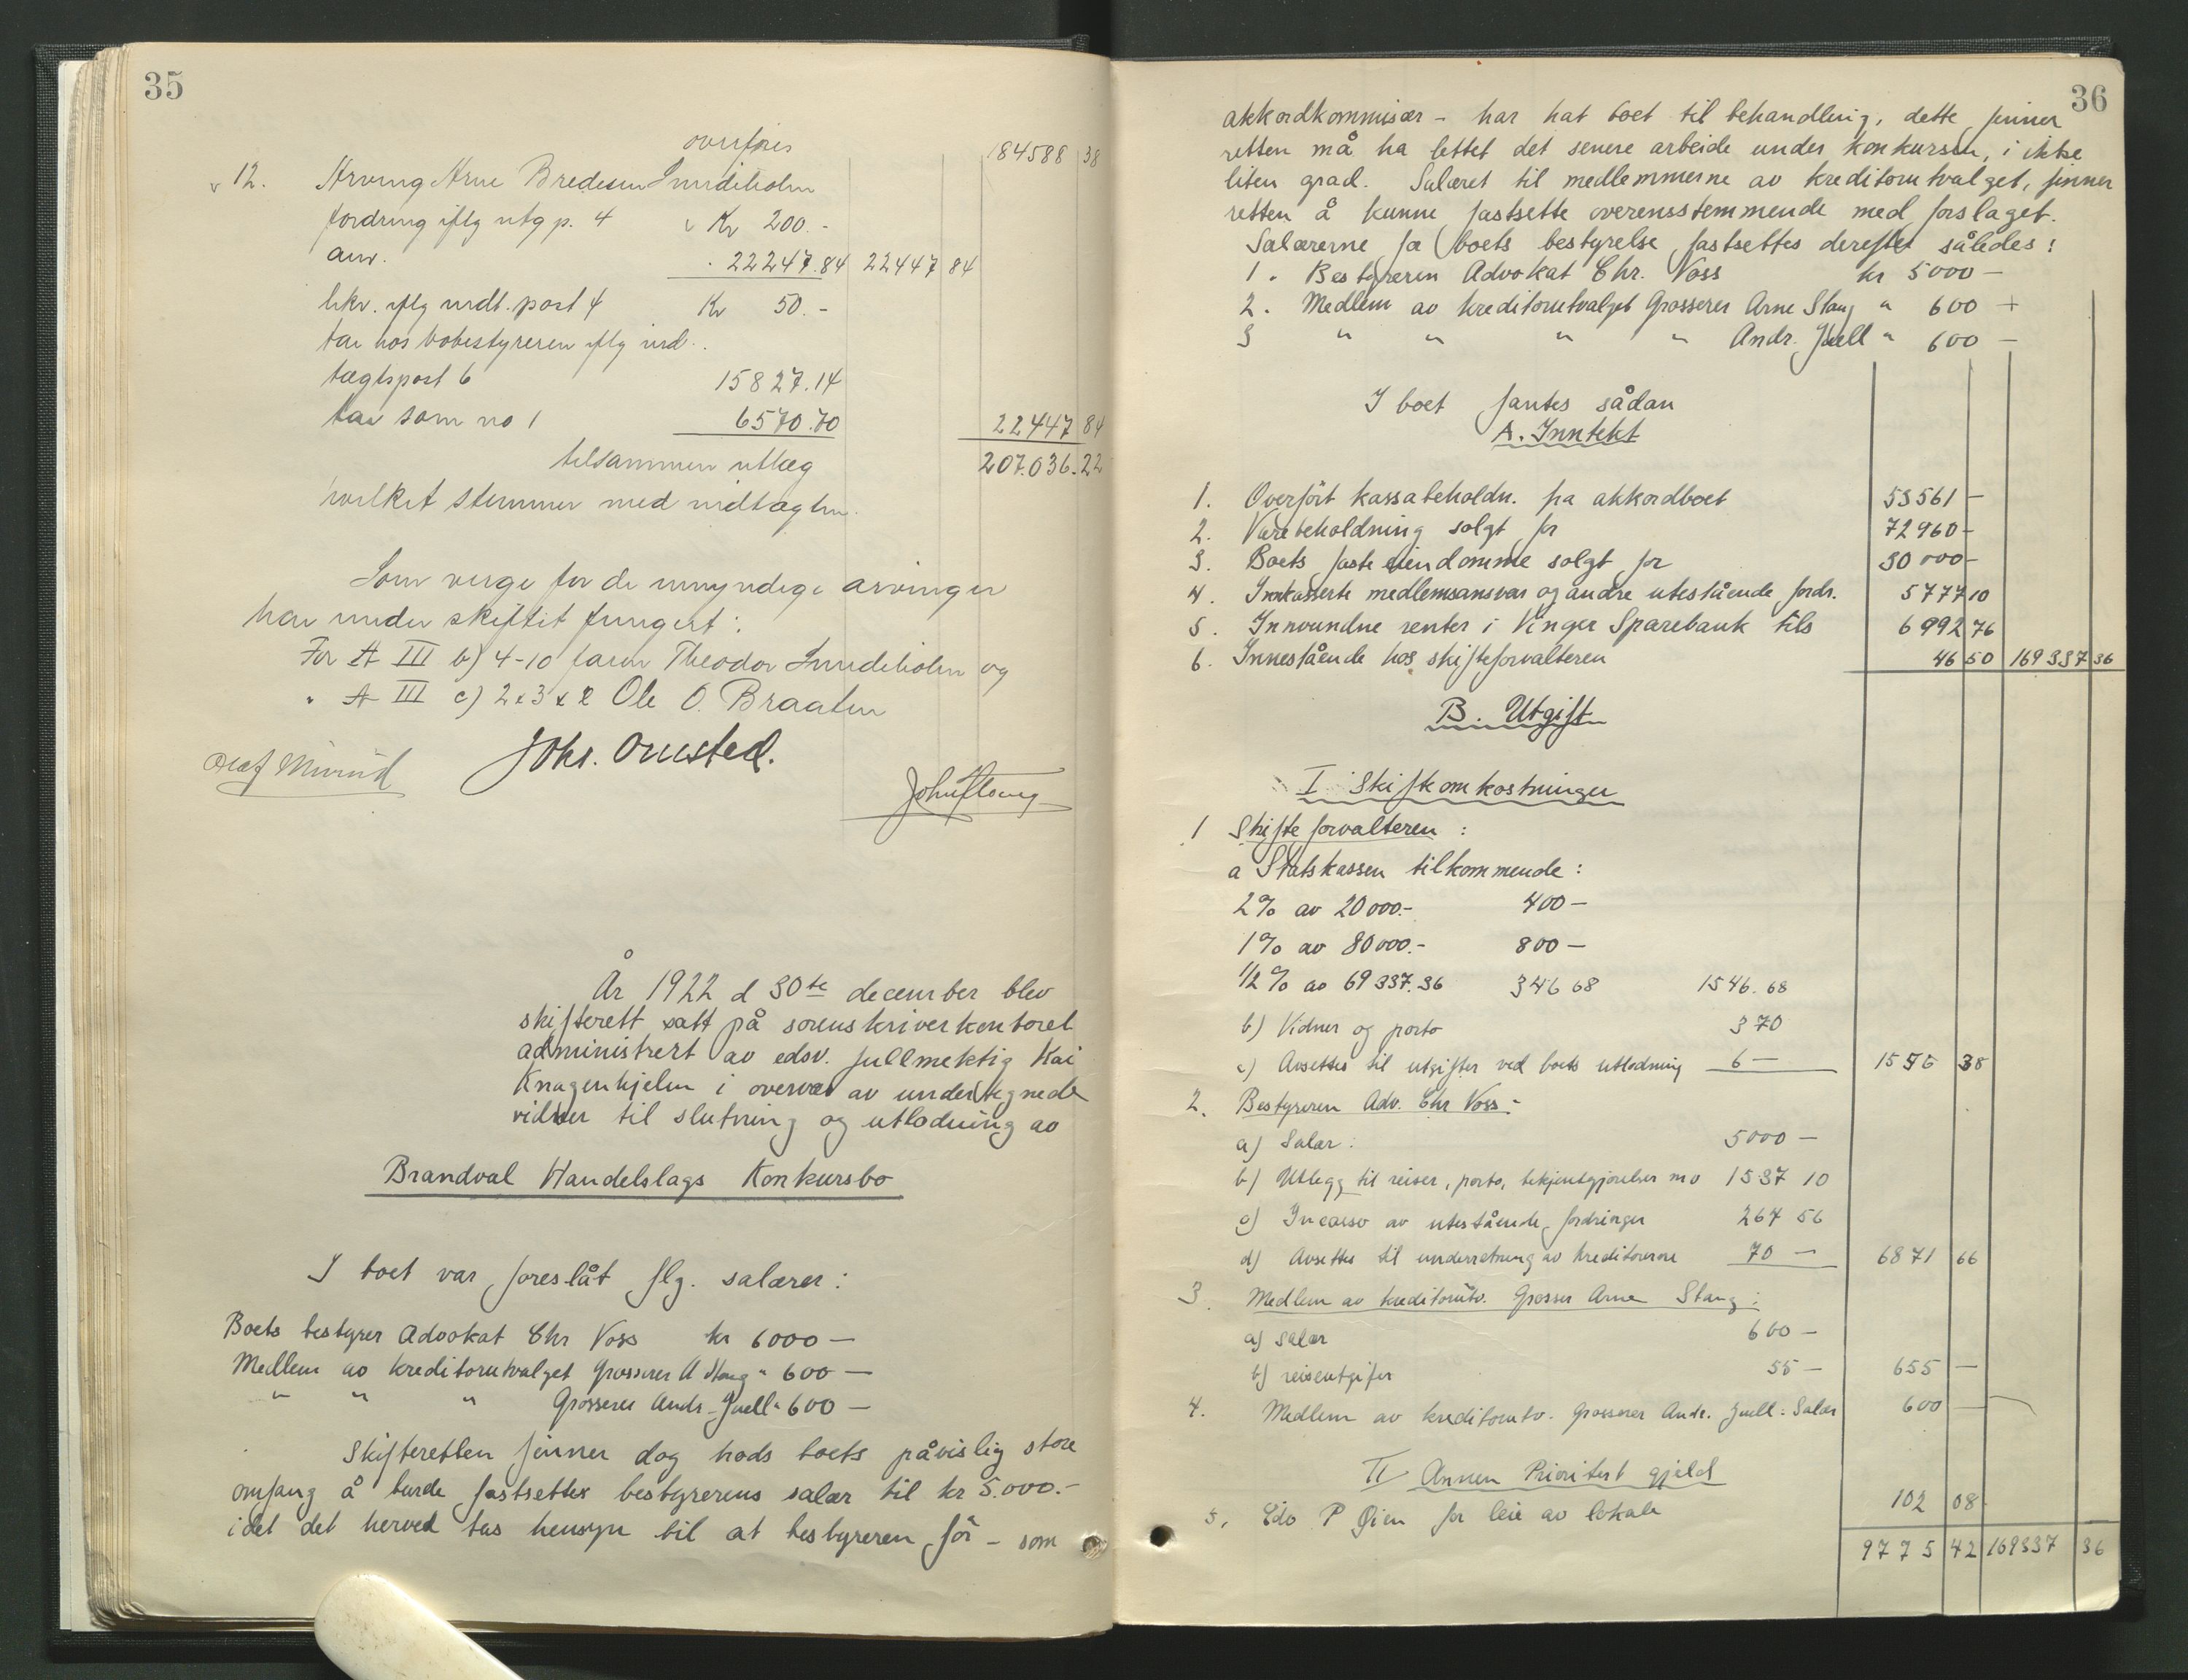 35
overføres 184588 38
12. Arving Arne Bredesen Lundeholm
fordring iflg utg p. 4 Kr 200.-
arv. 22247.84 22447 84
likv. iflg indt. post 4 Kr 50.-
tar hos bobestyreren iflg ind-
tægtspost 6 15827.14
tar som no 1 6570.70 22447 84
tilsammen utlæg 207.036.22
hvilket stemmer med indtægten.
Som verge for de umyndige arvinger
har under skiftet fungert:
For A III b) 4-10 faren Theodor Lundeholm og
" A III c) 2 & 3 & Ole O. Braaten
Johs. Onsted.
År 1922 d 30te december blev
skifterett satt på sorenskriverkontoret
administrert av edsv. fullmektig Kai
Knagenhjelm i overvær av undertegnede
vidner til slutning og utlodning av
Brandval Handelslags Konkursbo
I boet var foreslåt flg. salærer:
Boets bestyrer Advokat Chr Voss kr 6000 —
Medlem av kreditorutvalget Grosserer A Stang " 600 —
" " " Grosserer Andr. Juell " 600 —
Skifteretten finner dog trods boets påvislig store
omfang å burde fastsettes bestyrerens salær til kr 5.000.-
idet det herved tas hensyn til at bestyreren før - som
36
akkordkommisær - har hat boet til behandling, dette finner
retten må ha lettet det senere arbeide under konkursen, i ikke
liten grad. Salæret til medlemmerne av kreditorutvalget, finner
retten å kunne fastsette overensstemmende med forslaget.
Salærerne fa boets bestyrelse fastsettes derefter således:
1. Bestyreren Advokat Chr. Voss kr 5000 —
2. Medlem av kreditorutvalget Grosserer Arne Stang " 600 —
3 " " " " Andr. Juell " 600 —
I boet fantes sådan
A. Inntekt
1. Overført kassabeholdn. fra akkordboet 53561 —
2. Varebeholdning solgt for 72960 —
3. Boets faste eiendomme solgt for 30 000 —
4. Innkasserte medlemsansvar og andre utestående fordr. 5777 10
5. Innvundne renter i Vinger Sparebank tils 6992 76
6. Innestående hos skifteforvalteren 46 50 169 337 36
B. Utgift
I Skifteomkostninger
1 Skifteforvalteren:
a Statskassen tilkommende:
2% av 20 000.- 400 —
1% av 80000.- 800 —
1/2% av 69 337.36 346 68 1546.68
b) Vidner og porto 3 70
c) Avsettes til utgifter ved boets utlodning 6 — 1556 38
2. Bestyreren Adv. Chr Voss:
a) Salær: 5000 —
b) Utlegg til reiser, porto, bekjentgjørelser mv 1537 10
c) Incasso av utestående fordringer 264 56
d) Avsettes til underretning av kreditorerne 70 — 6871 66
3. Medlem av kreditorutv. Grosser Arne Stang:
a) Salær 600 —
b) reiseutgifter 55 — 655 —
4. Medlem av kreditorutv. Grosserer Andr. Juell: Salær 600 —
II Annen Prioritert gjeld
5. P Øien for leie av lokale 102 08
9775 42 169337 36